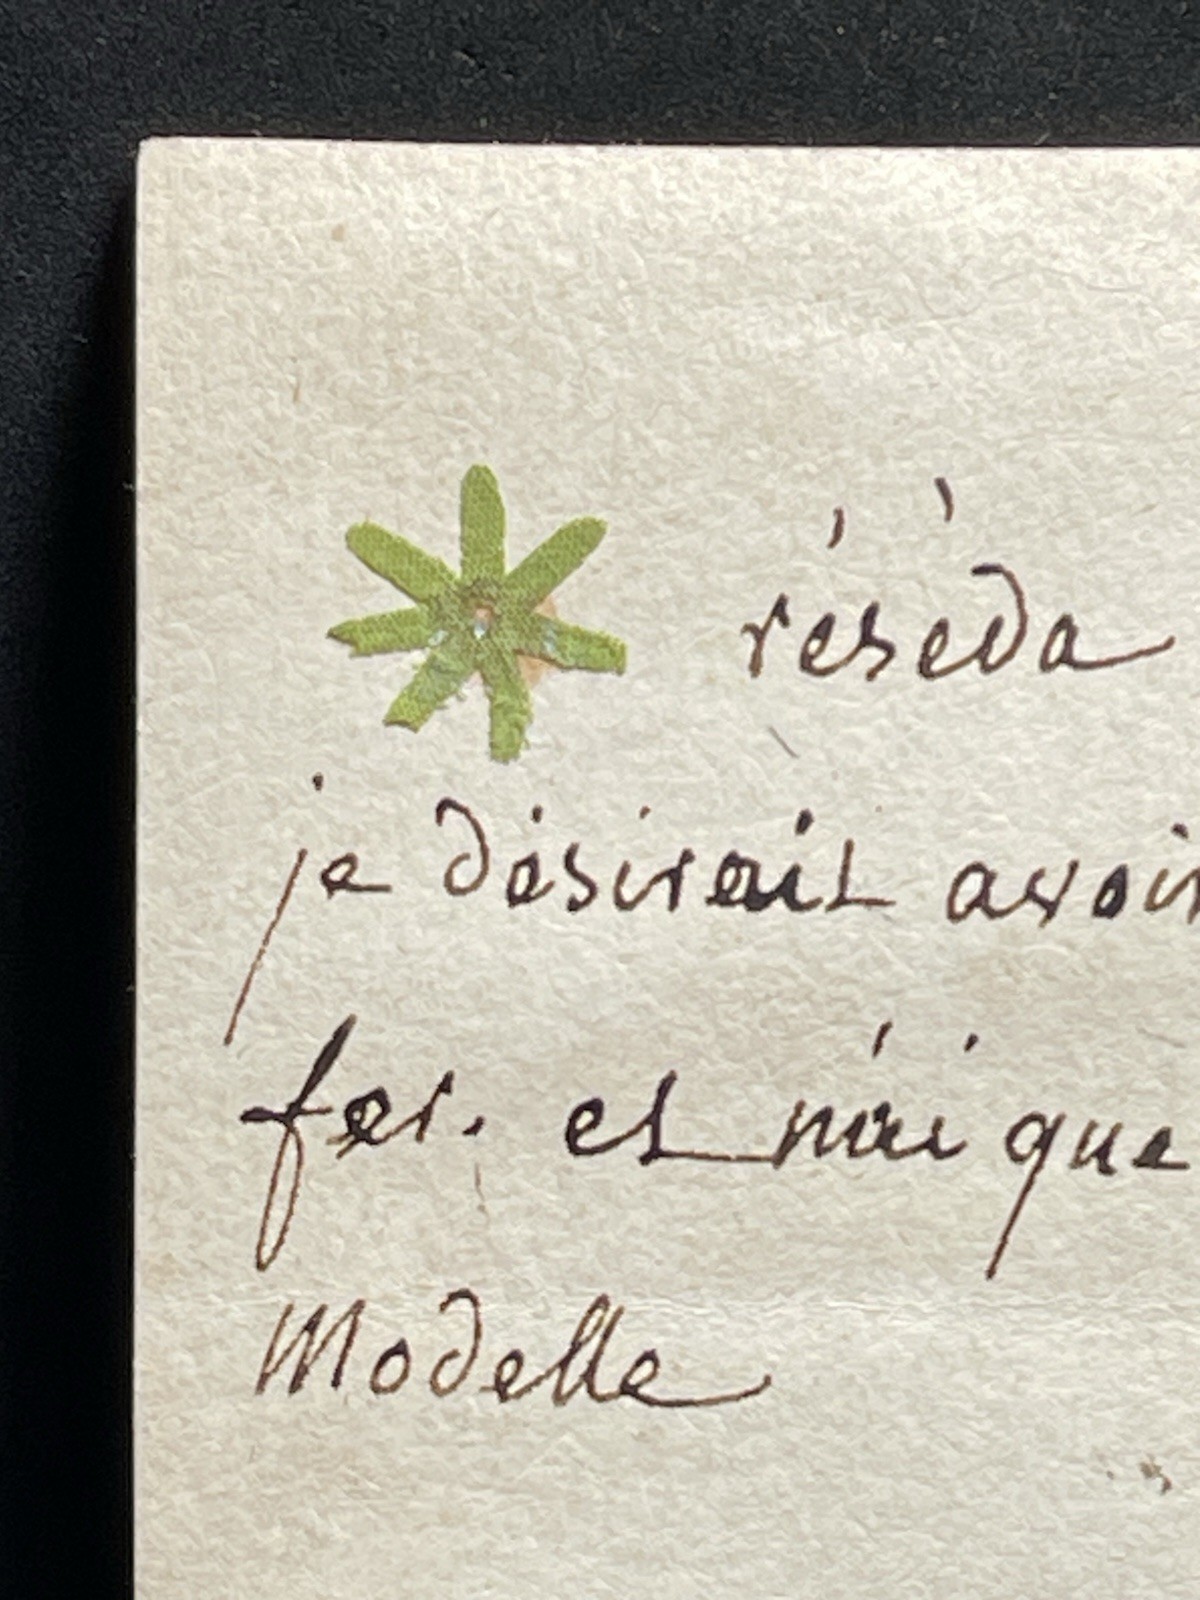 réséda
je désirait avoir
fer. et n'ai que
Modelle